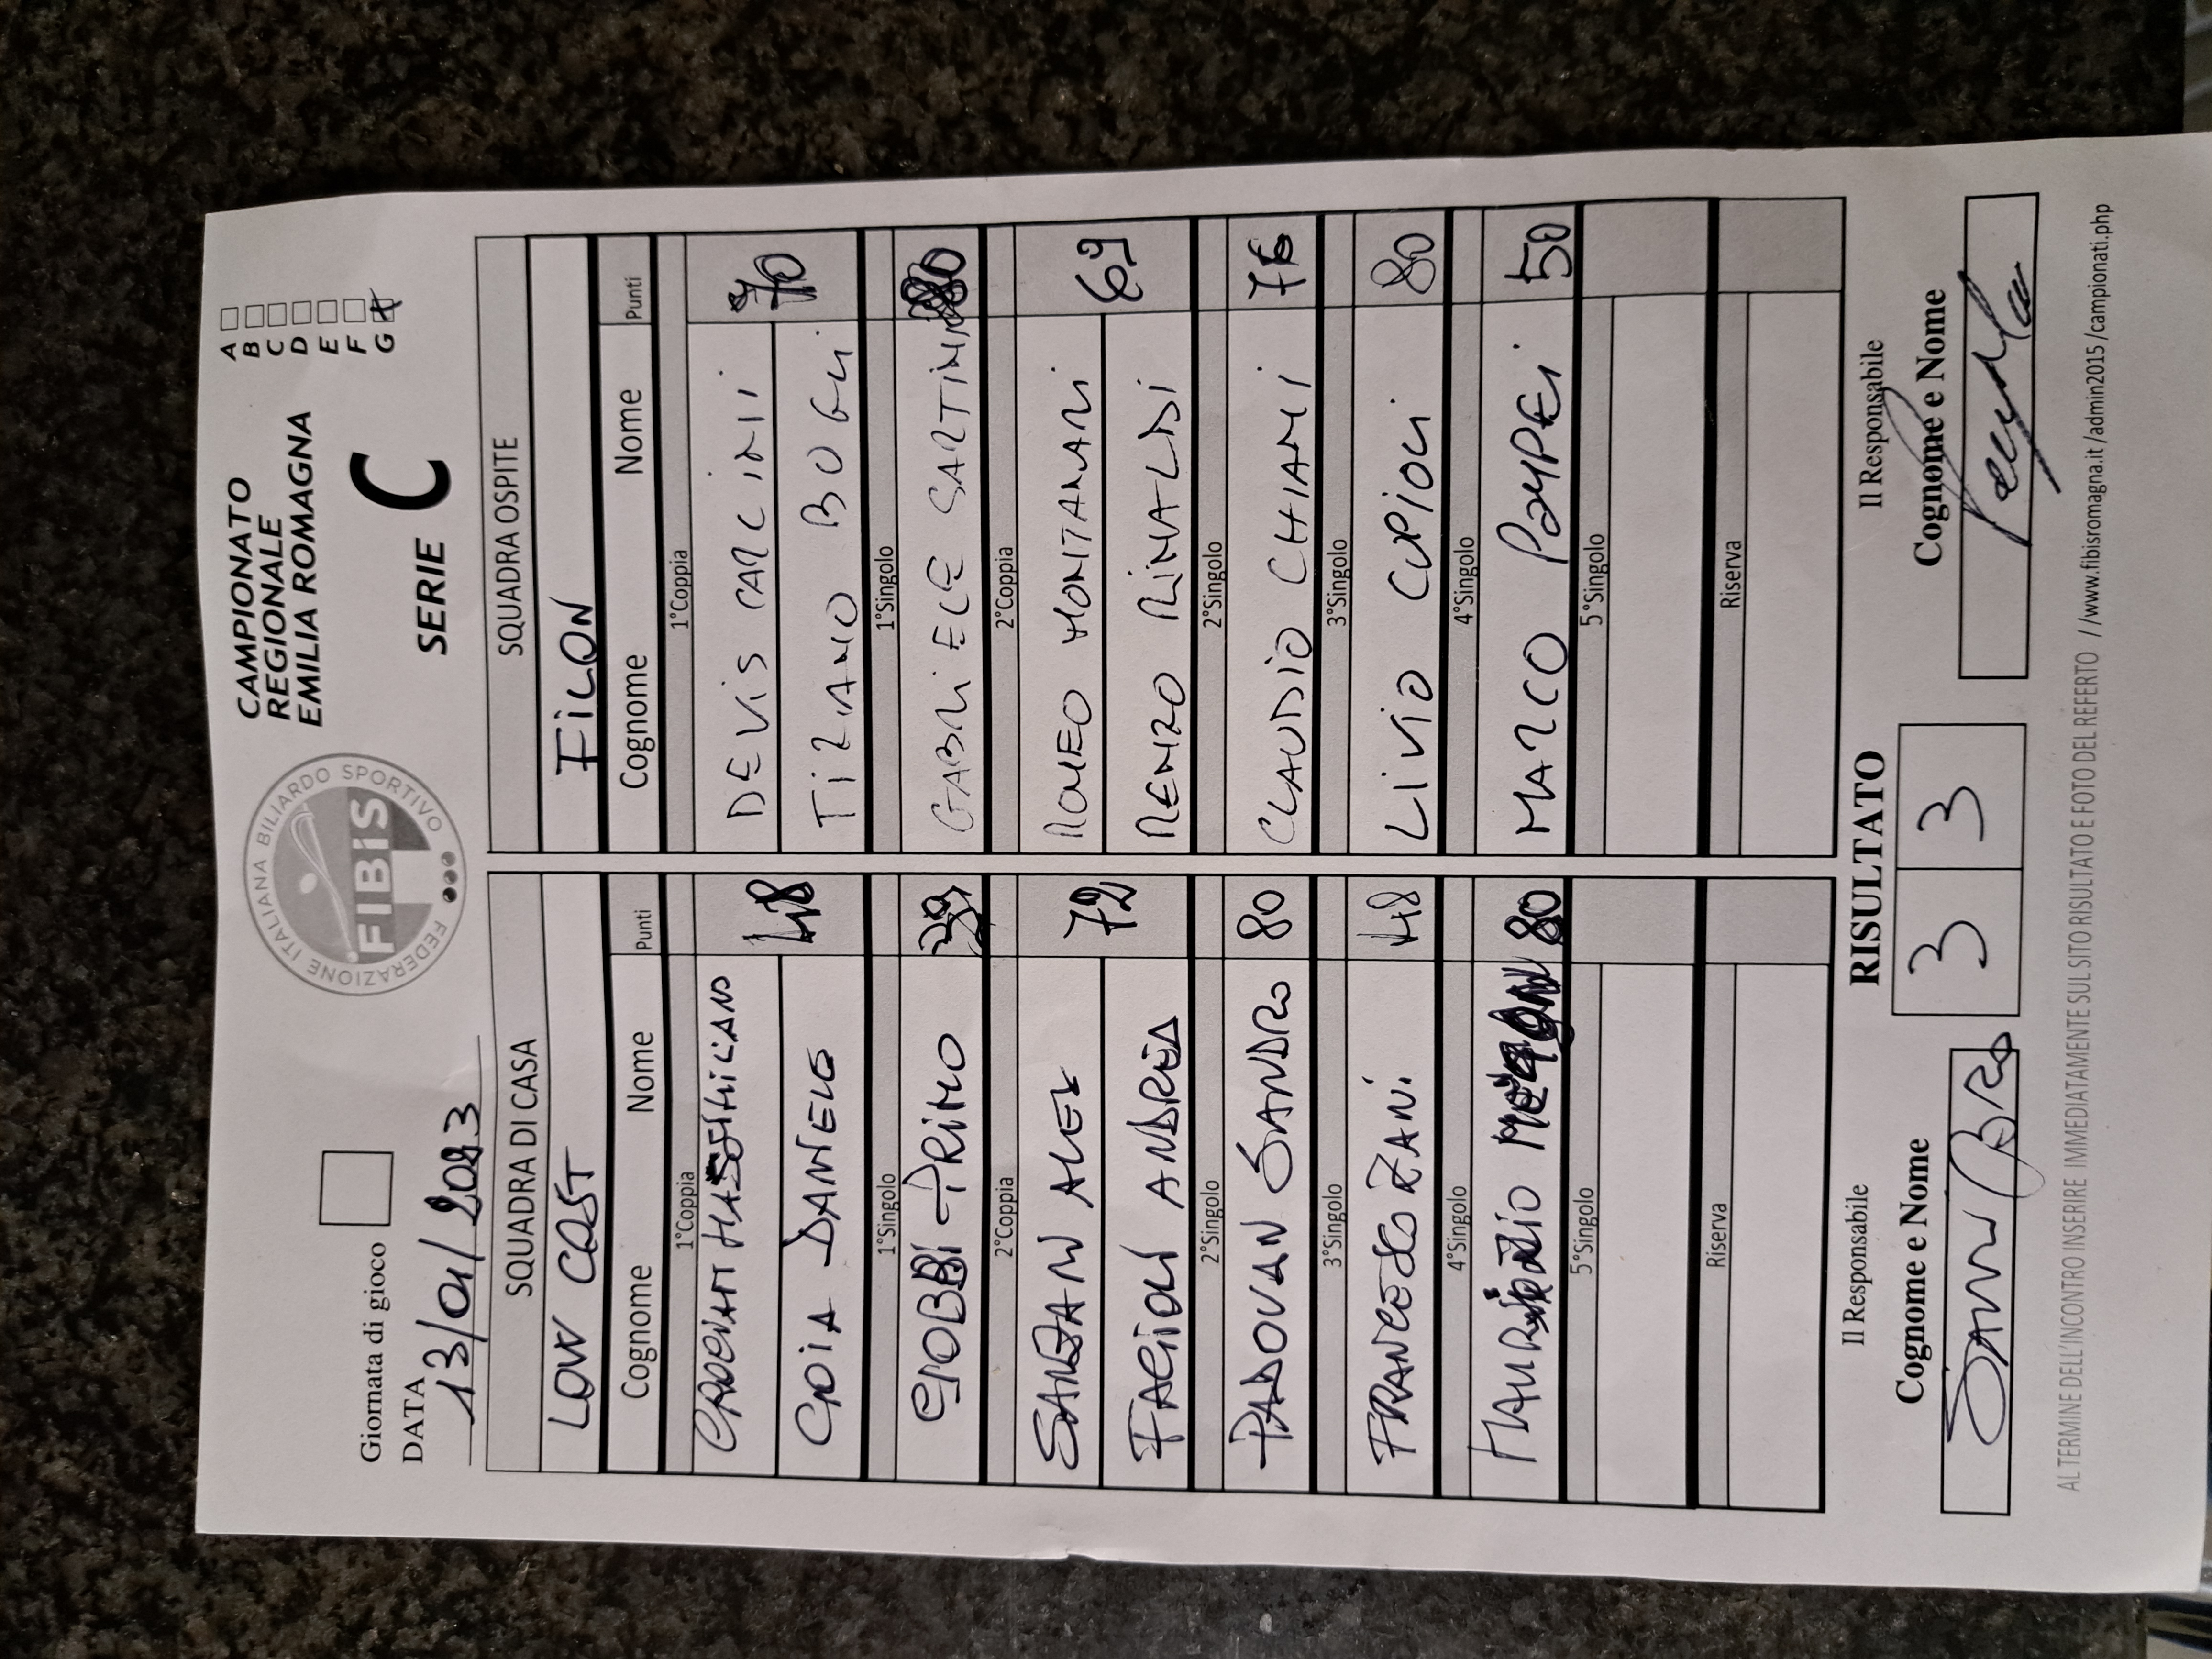 Giornata di gioco
DATA 13/01/2023
FEDERAZIONE ITALIANA BILIARDO SPORTIVO
FIBiS
CAMPIONATO
REGIONALE
EMILIA ROMAGNA
SERIE C
A
B
C
D
E
F
G X
SQUADRA DI CASA
LOW COST
Cognome Nome Punti
1°Coppia
MASSIMILIANO
GOIA DANIELE 48
1°Singolo
GOBBI PRIMO
2°Coppia
ALEX
FAGIOLI ANDREA 72
2°Singolo
PADOVAN SANDRO 80
3°Singolo
FRANCESCO ZANI. 48
4°Singolo
MAURIZIO 80
5°Singolo
Riserva
SQUADRA OSPITE
FILON
Cognome Nome Punti
1°Coppia
DEVIS CARLINI
TIZIANO BOGLI 70
1°Singolo
GABRIELE SARTINI 80
2°Coppia
ROMEO MONTANARI
RENZO RINALDI 69
2°Singolo
CLAUDIO CHIARI 76
3°Singolo
LIVIO CUPIOLI 80
4°Singolo
MARCO POMPEI 50
5°Singolo
Riserva
Il Responsabile
Cognome e Nome
RISULTATO
3 3
Il Responsabile
Cognome e Nome
AL TERMINE DELL'INCONTRO INSERIRE IMMEDIATAMENTE SUL SITO RISULTATO E FOTO DEL REFERTO //www.fibisromagna.it/admin2015/campionati.php